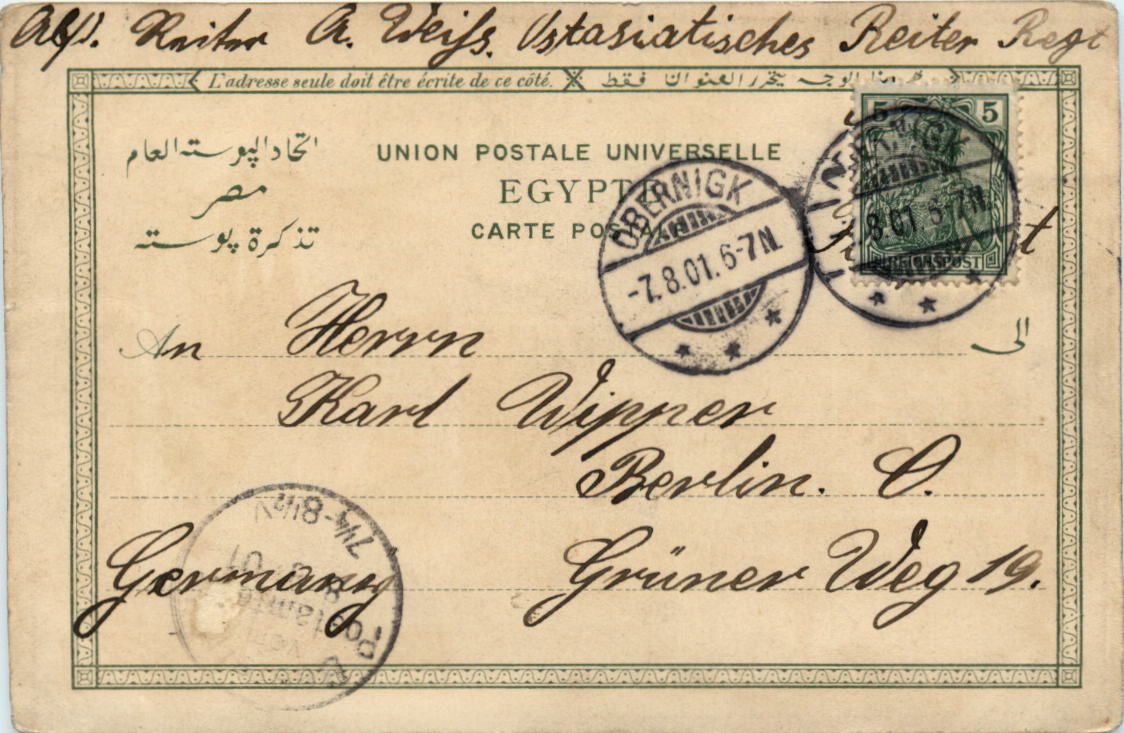 Abs. Reiter A. Weiss. Ostasiatisches Reiter Regt
L'adresse seule doit être écrite de ce côté. الوجه يتحرر العنوان فقط
اتحاد البوسته العام
مصر
تذكرة بوسته
UNION POSTALE UNIVERSELLE
EGYPTE
CARTE POSTALE
5 5
REICHSPOST
OBERNIGK
-7.8.01.6-7N.
OBERNIGK
8.01.6-7N.
An Herrn الى
Karl Wipper
Berlin. O.
Grüner Weg 19.
Germany
7¼-8½V
Postamte